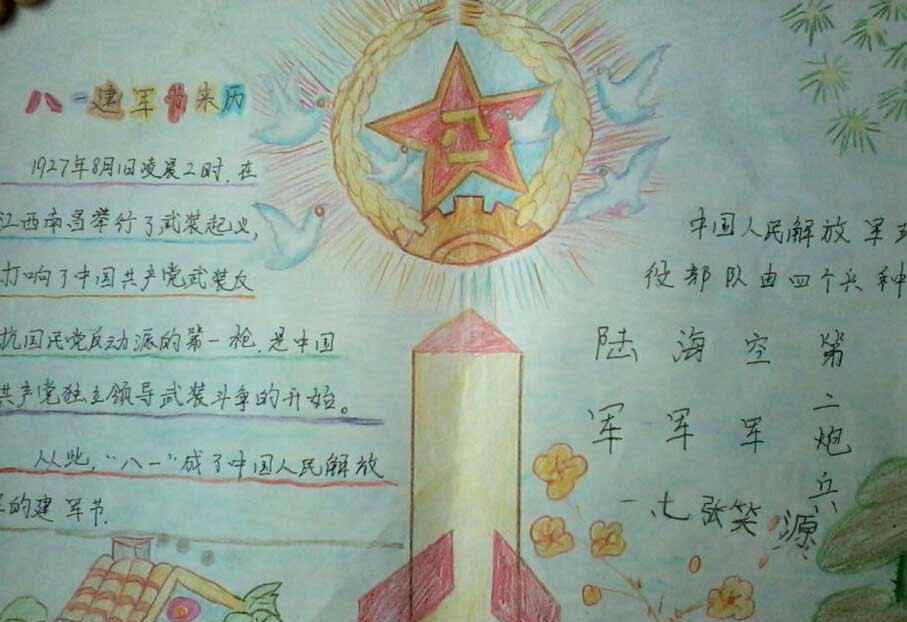 八一建军节来历
1927年8月1日凌晨2时,在
江西南昌举行了武装起义,
打响了中国共产党武装反
抗国民党反动派的第一枪,是中国
共产党独立领导武装斗争的开始。
从此,“八一”成了中国人民解放
的建军节.
八一
中国人民解放军现
役部队由四个兵种
陆军
海军
空军
第二炮兵
一、七张笑源